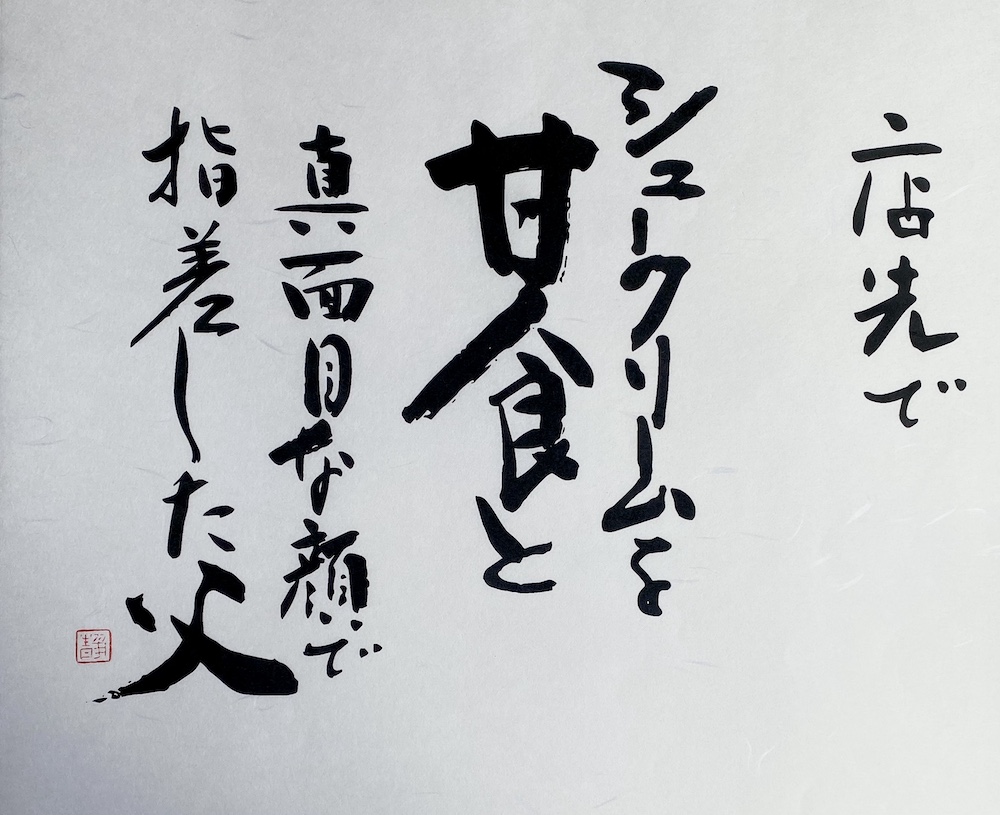 店先で
シュークリームを
甘食と
真面目な顔で
指差した父
静